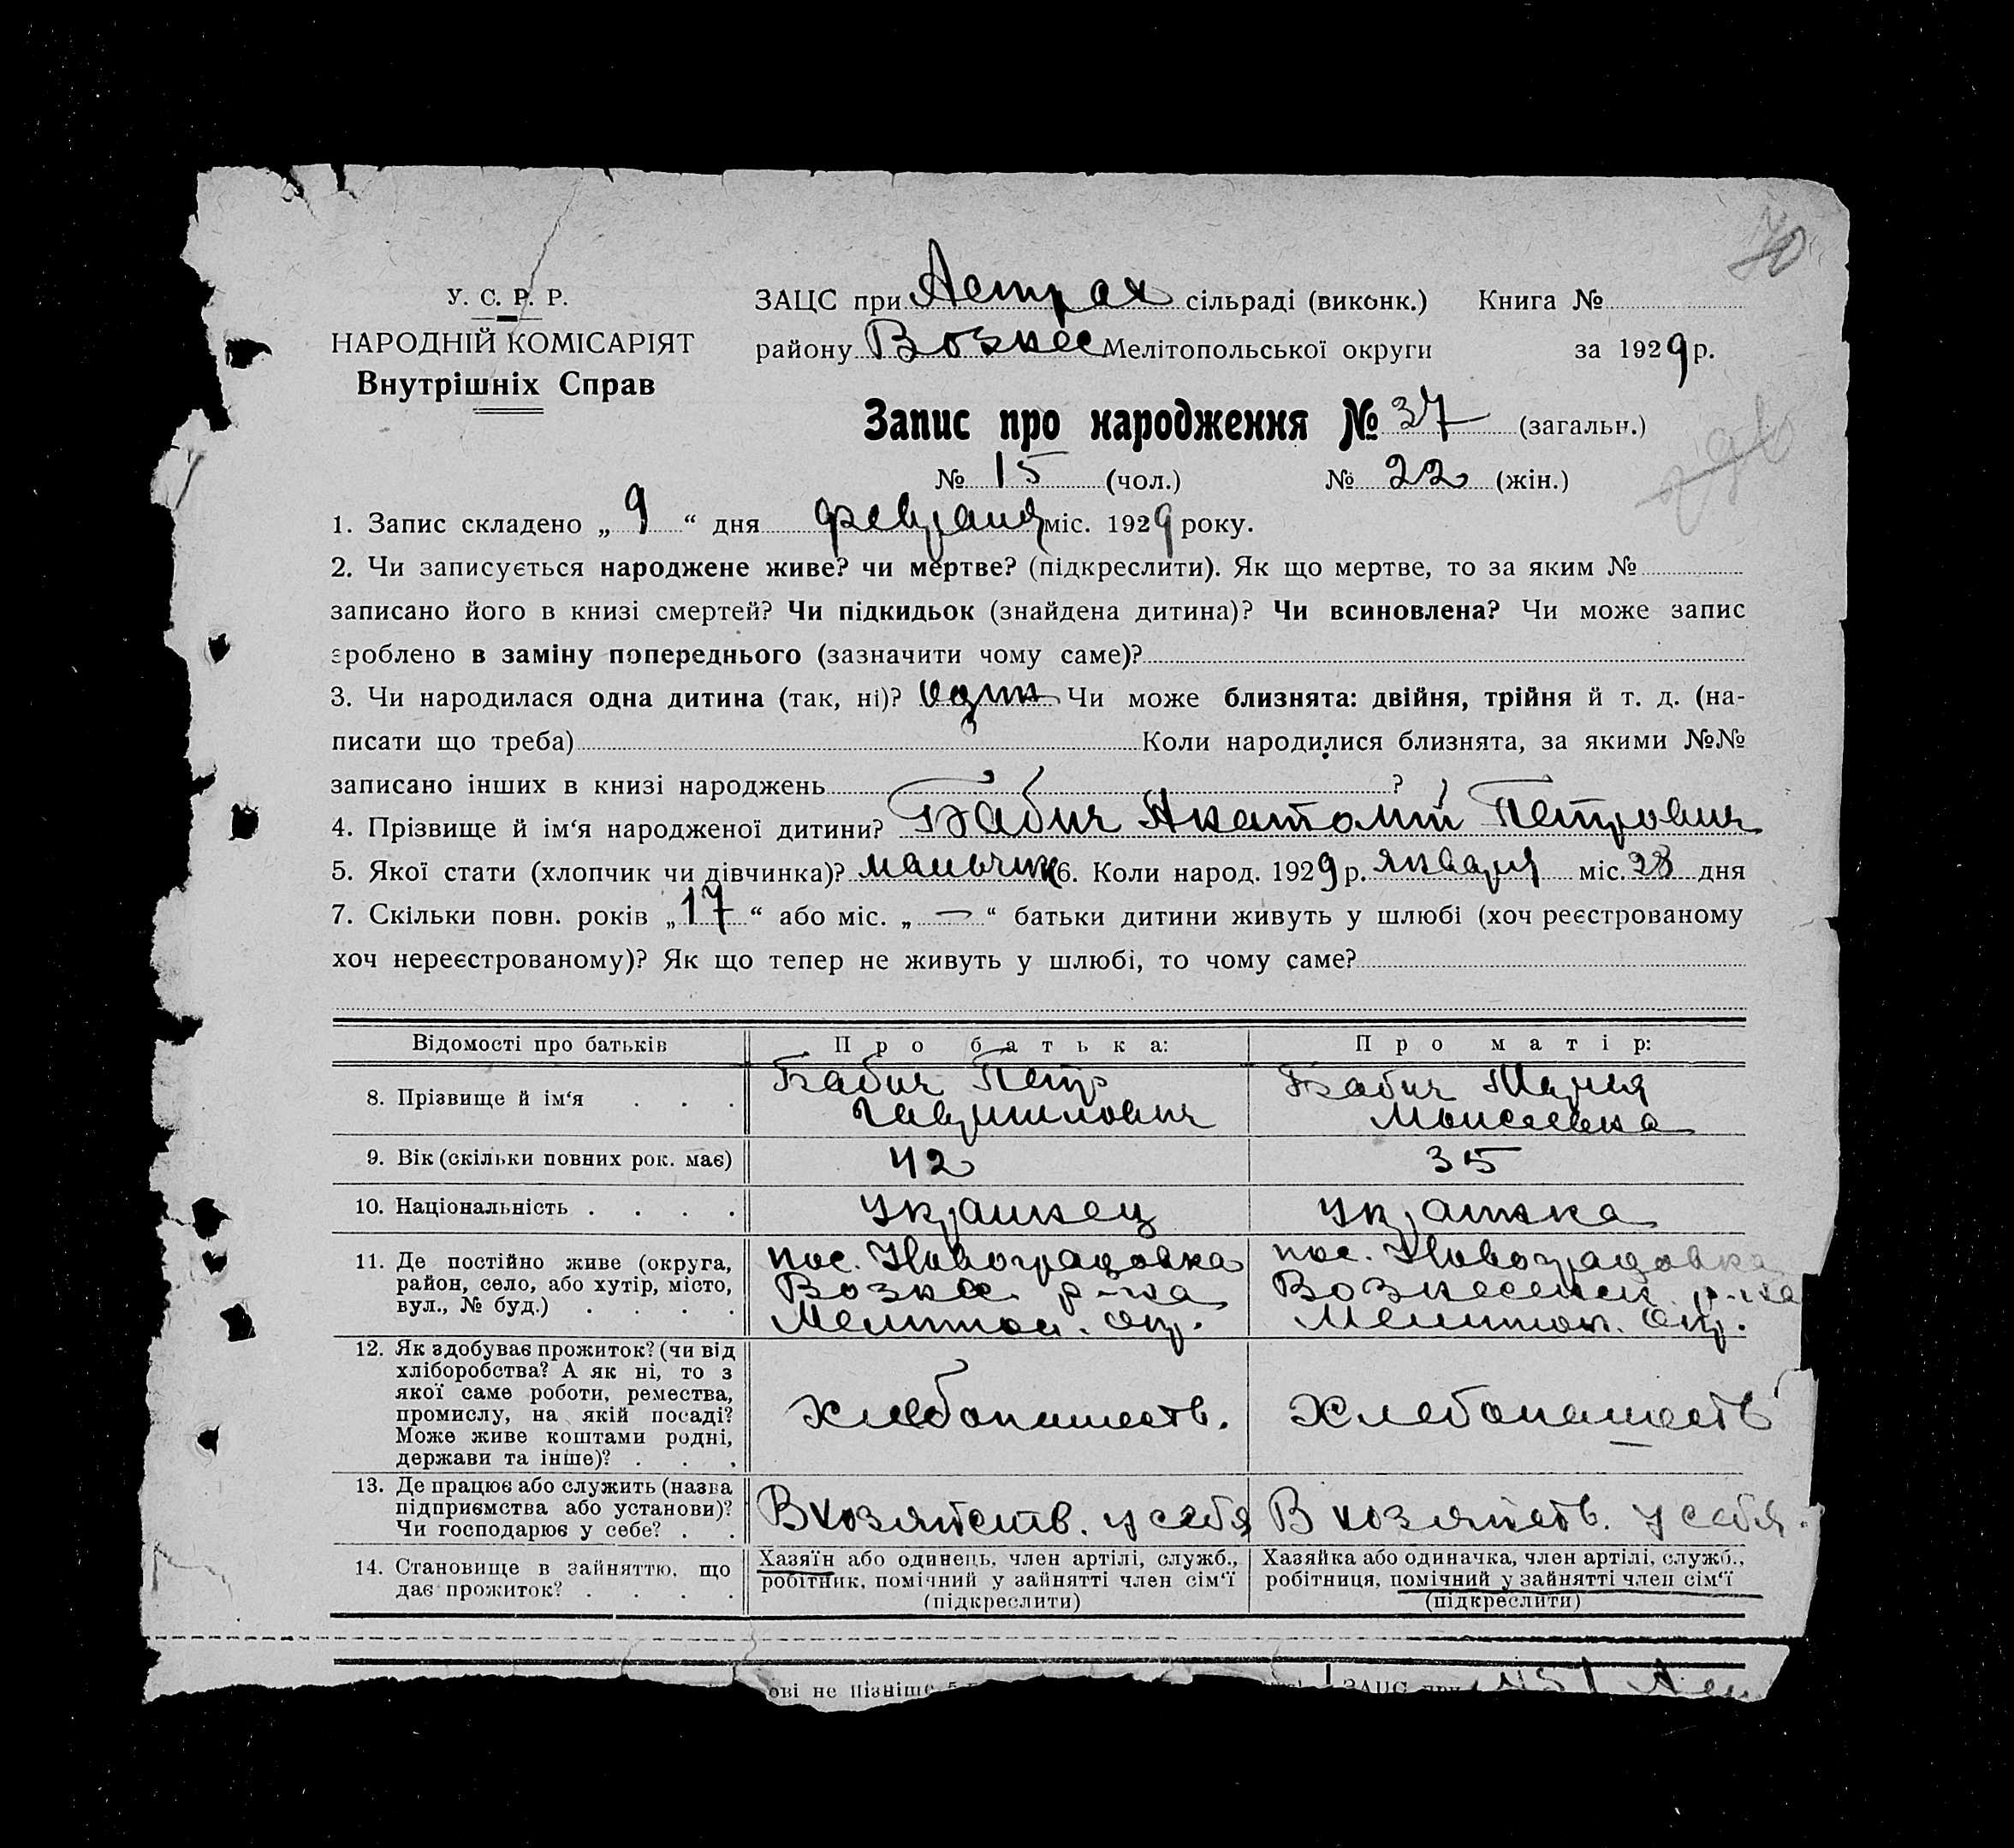 70
У. С. Р. Р.
НАРОДНІЙ КОМІСАРІЯТ
Внутрішніх Справ
ЗАЦС при Астрах сільраді (виконк.) Книга №
району Вознес Мелітопольської округи за 1929 р.
Запис про народження № 37 (загальн.)
№ 15 (чол.) № 22 (жін.)
1. Запис складено „ 9 “ дня февраля міс. 1929 року.
2. Чи записується народжене живе? чи мертве? (підкреслити). Як що мертве, то за яким №
записано його в книзі смертей? Чи підкидьок (знайдена дитина)? Чи всиновлена? Чи може запис
зроблено в заміну попереднього (зазначити чому саме)?
3. Чи народилася одна дитина (так, ні)? один Чи може близнята: двійня, трійня й т. д. (на-
писати що треба) Коли народилися близнята, за якими №№
записано інших в книзі народжень ?
4. Прізвище й ім‘я народженої дитини? Бабич Анатолий Петрович
5. Якої стати (хлопчик чи дівчинка)? мальчик 6. Коли народ. 1929 р. января міс. 28 дня
7. Скільки повн. років „ 17 “ або міс. „ — “ батьки дитини живуть у шлюбі (хоч реєстрованому
хоч нереєстрованому)? Як що тепер не живуть у шлюбі, то чому саме?
Відомості про батьків Про батька: Про матір:
8. Прізвище й ім‘я . . . Бабич Петр Гаврилович Бабич Мария Моисеевна
9. Вік (скільки повних рок. має) 42 35
10. Національність . . . . Украинец Украинка
11. Де постійно живе (округа, район, село, або хутір, місто, вул., № буд.) . . . . пос. Новоградовка Вознес. р-на Мелитоп. окр. пос. Новоградовка Вознесенск. р-на Мелитоп. Окр.
12. Як здобуває прожиток? (чи від хліборобства? А як ні, то з якої саме роботи, ремества, промислу, на якій посаді? Може живе коштами родні, держави та інше)? . . . Хлебопашеств. Хлебопашеств
13. Де працює або служить (назва підприємства або установи)? Чи господарює у себе? . . В хозяйств. у себя В хозяйств. у себя.
14. Становище в зайняттю, що дає прожиток? . . . . Хазяїн або одинець, член артілі, служб., робітник, помічний у зайнятті член сім‘ї (підкреслити) Хазяйка або одиначка, член артілі, служб., робітниця, помічний у зайнятті член сім‘ї (підкреслити)
ові не пізніше ЗАЦС при